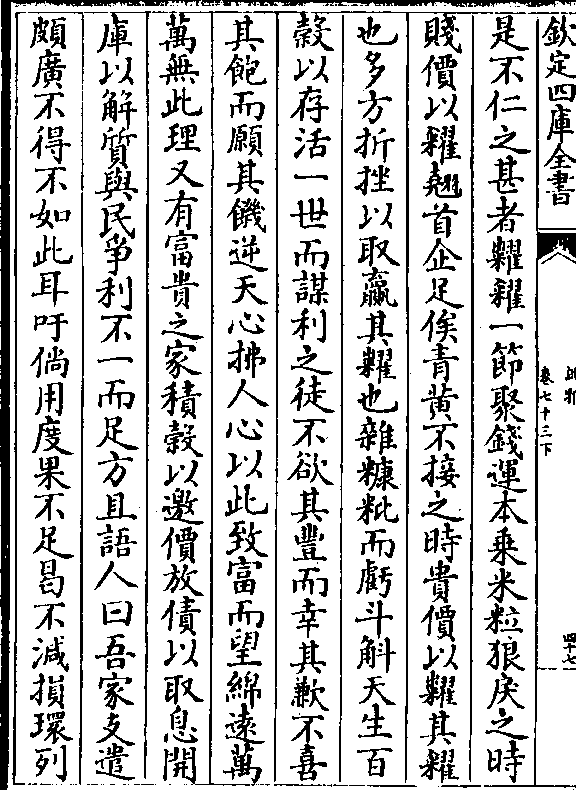 欽定四庫全書
卷七十三下
四十七
是不仁之甚者糶糴一節聚錢運本乗米粒狼戾之時
賤價以糴翹首企足俟青黄不接之時貴價以糶其糴
也多方折挫以取贏其糶也雜糠粃而虧斗斛天生百
穀以存活一世而謀利之徒不欲其豐而幸其歉不喜
其飽而願其饑逆天心拂人心以此致富而望綿遠萬
萬無此理又有富貴之家積穀以邀價放債以取息開
庫以解質與民爭利不一而足方且語人曰吾家支遣
頗廣不得不如此耳吁倘用度果不足曷不減損環列